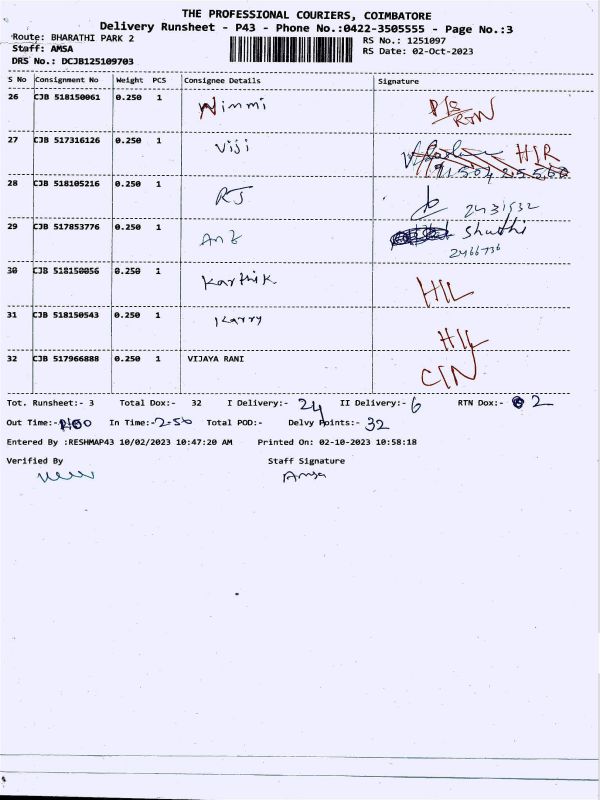 THE PROFESSIONAL COURIERS, COIMBATORE
Delivery Runsheet - P43 - Phone No.:0422-3505555 - Page No.:3
Route: BHARATHI PARK 2
RS No.: 1251097
Staff: AMSA
RS Date: 02-Oct-2023
DRS No.: DCJB125109703
S No Consignment No Weight PCS Consignee Details Signature
26 CJB 518150061 0.250 1 Nimmi D/S RTN
27 CJB 517316126 0.250 1 Viji HIR
28 CJB 518105216 0.250 1 RJ 2431532
29 CJB 517853776 0.250 1 Shuthi
2466736
30 CJB 518150056 0.250 1 Karthik HIL
31 CJB 518150543 0.250 1 Karry HIL
32 CJB 517966888 0.250 1 VIJAYA RANI CIN
Tot. Runsheet:- 3 Total Dox:- 32 I Delivery:- 24 II Delivery:- 6 RTN Dox:- 2
Out Time:- In Time:- 2-50 Total POD:- Delvy Points:- 32
Entered By :RESHMAP43 10/02/2023 10:47:20 AM Printed On: 02-10-2023 10:58:18
Verified By Staff Signature
Amsa